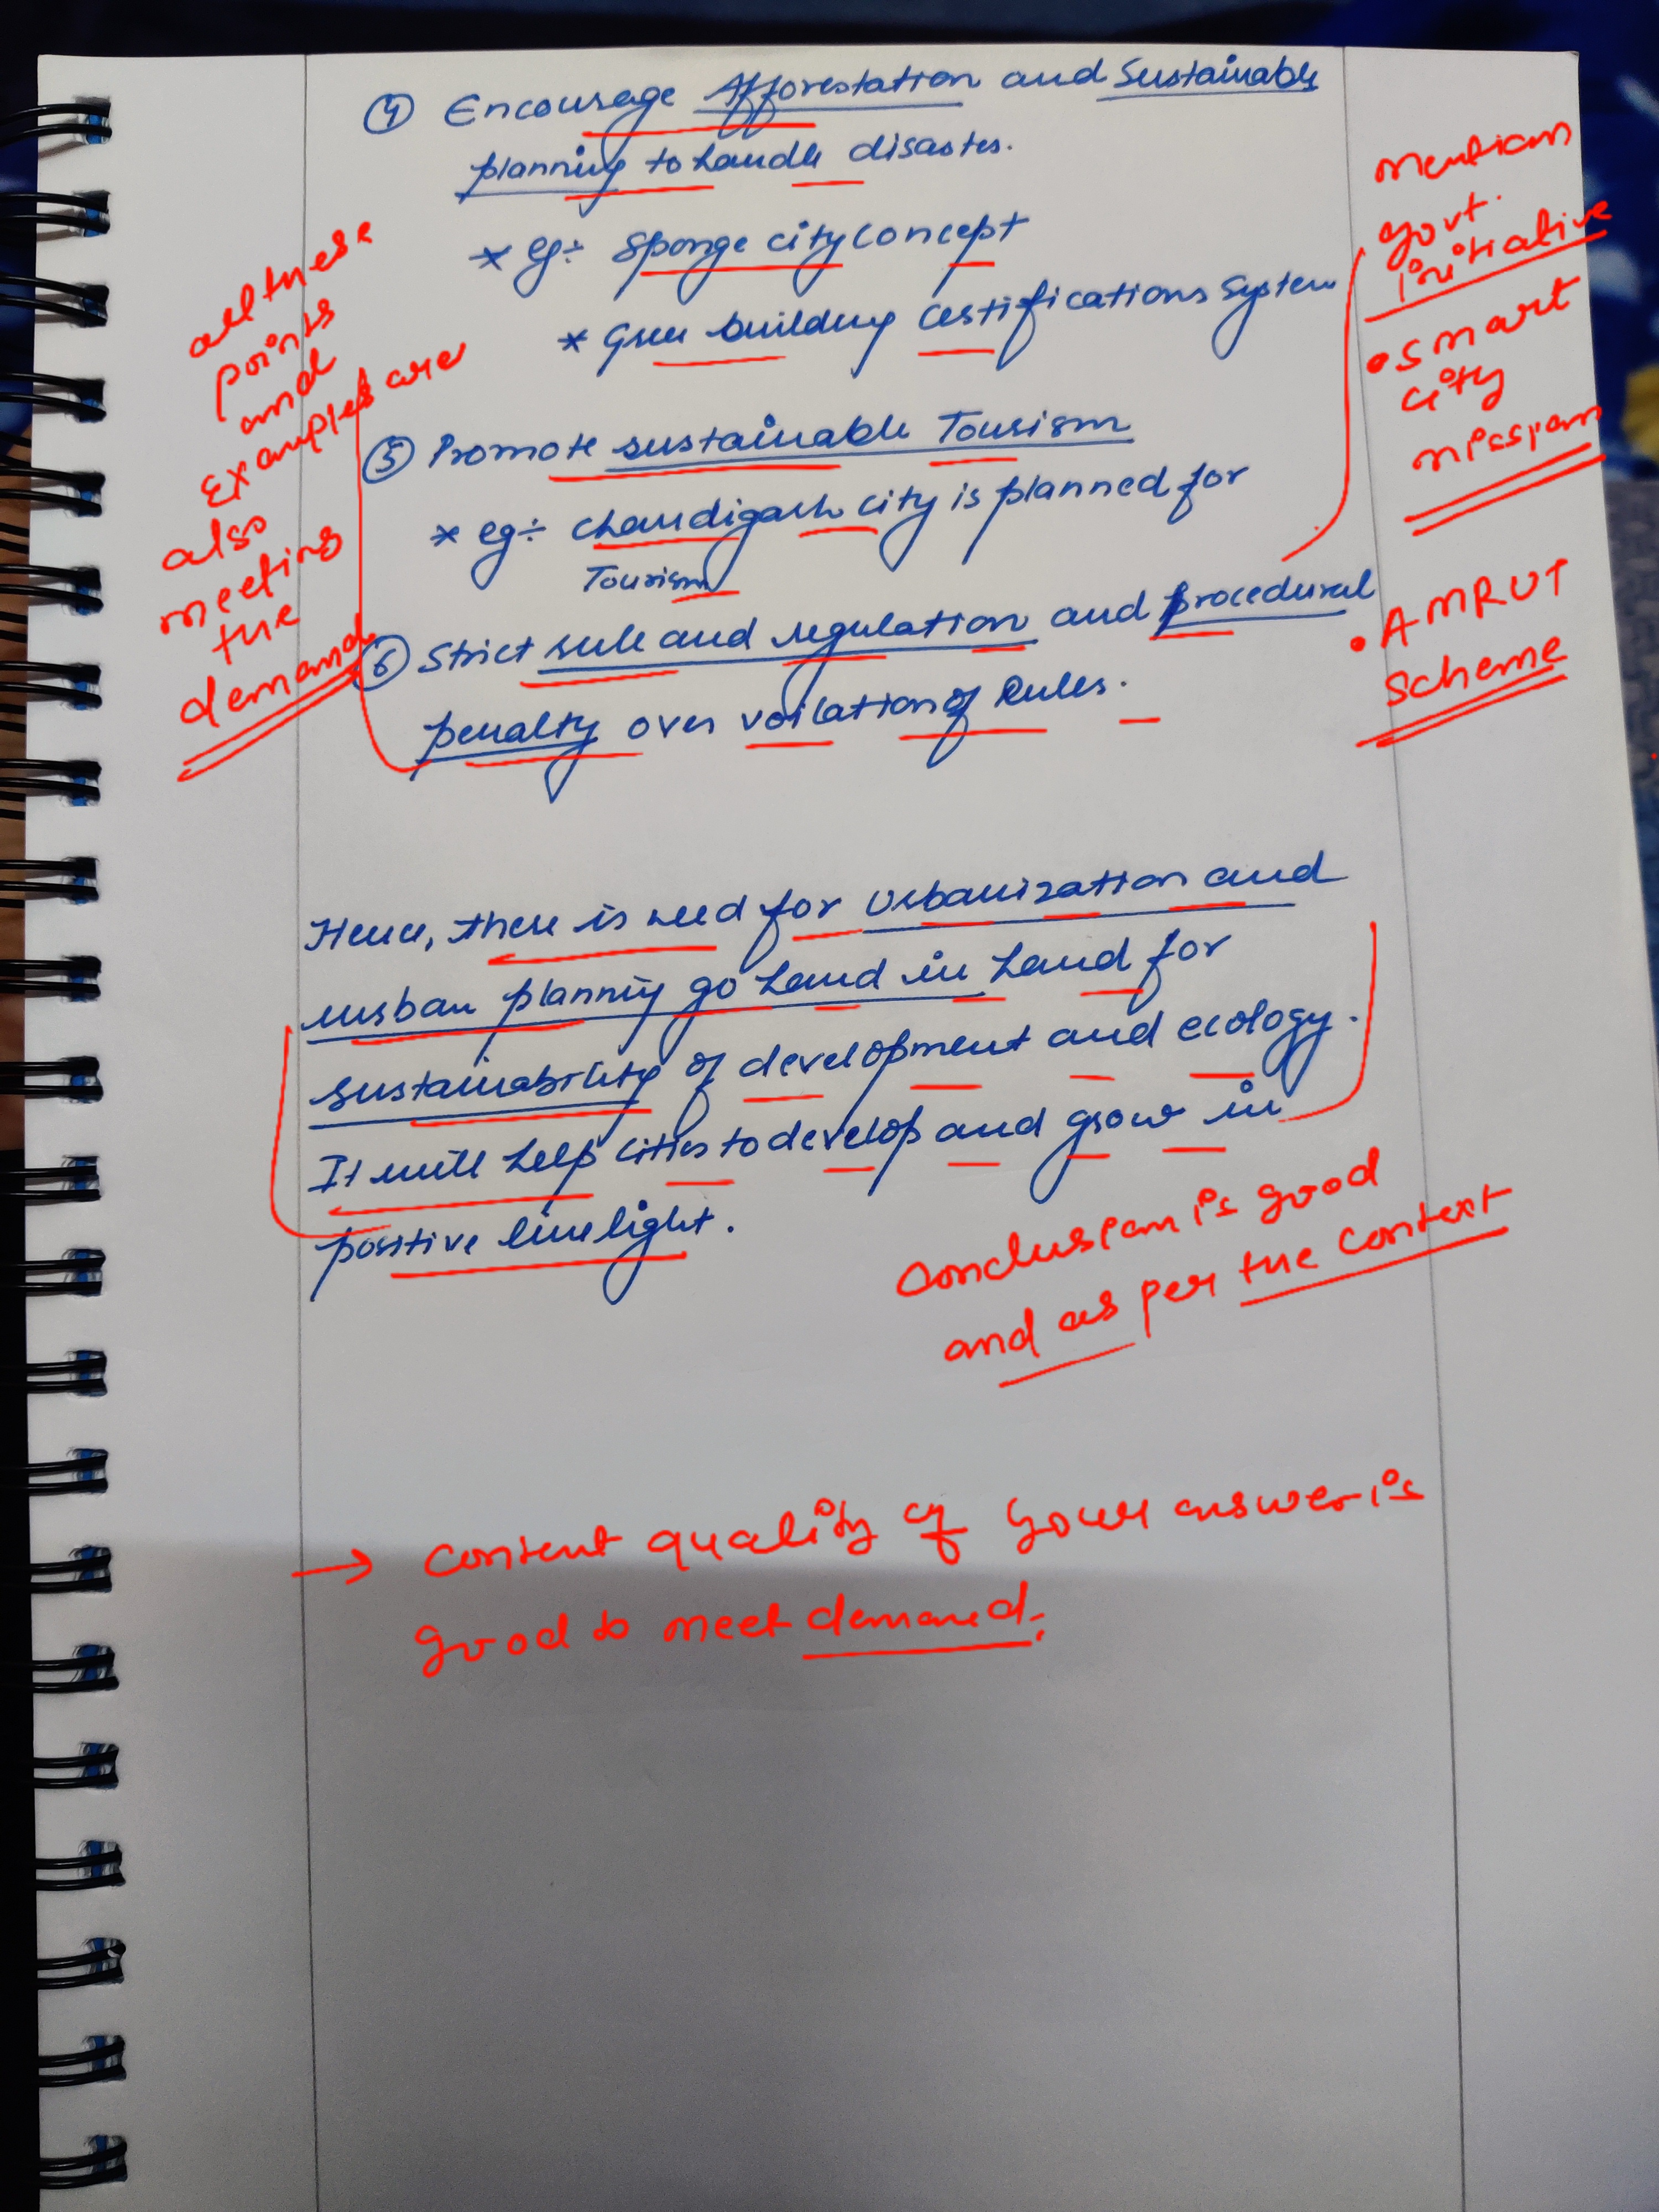 ④ Encourage Afforestation and Sustainable
planning to handle disaster.
* eg÷ Sponge city concept
* Green building Certifications System
⑤ Promote sustainable Tourism
* eg÷ Chandigarh city is planned for
Tourism
⑥ Strict rule and regulation and procedural
penalty over voilation of Rules.
all these
points
and
Examples are
also
meeting
the
demand
Mention
govt.
initiative
• Smart
city
mission
• AMRUT
Scheme
Hence, there is need for Urbanization and
urban planning go hand in hand for
sustainability of development and ecology.
It will help cities to develop and grow in
positive limelight.
Conclusion is good
and as per the context
→ Content quality of your answer is
good to meet demand.